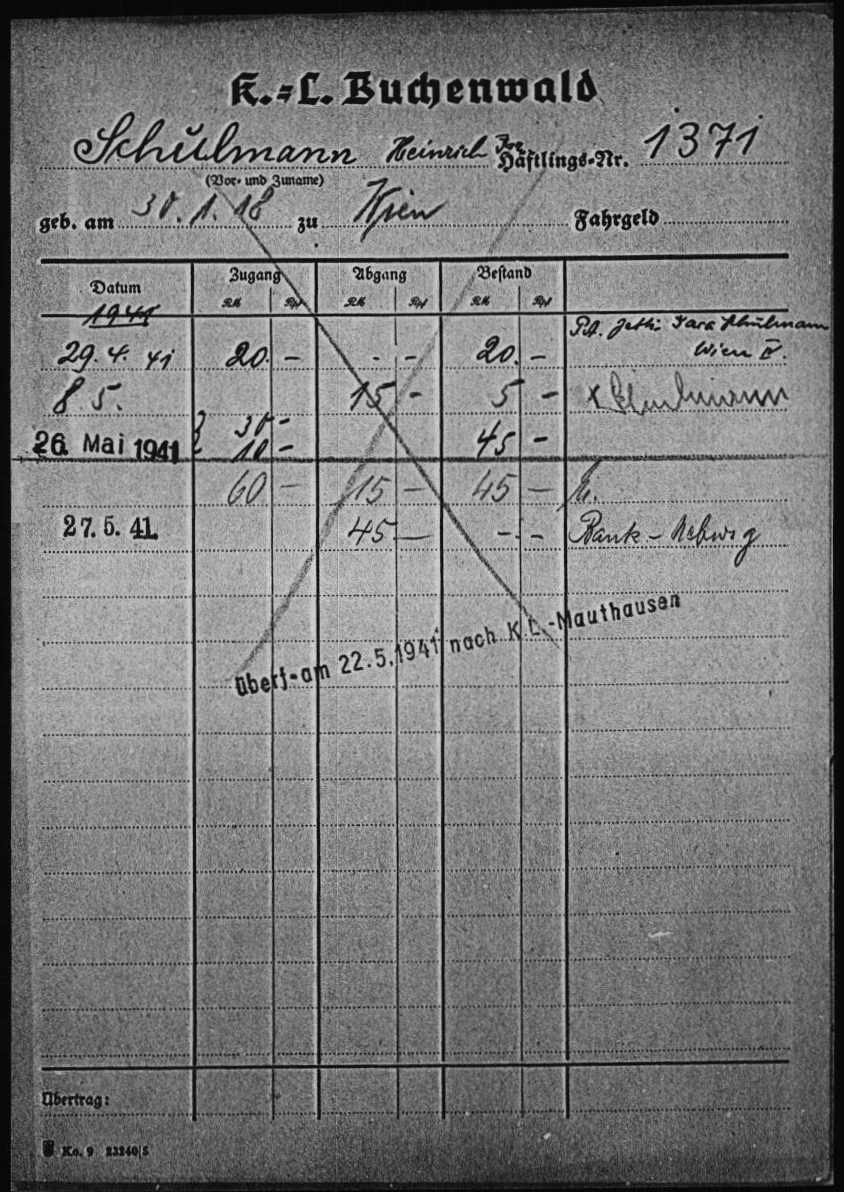 K.=L. Buchenwald
Schulmann Heinrich Isr. Häftlings-Nr. 1371
(Vor- und Zuname)
geb. am 30. 1. 18 zu Wien Fahrgeld
Datum Zugang Abgang Bestand
RM Rpf RM Rpf RM Rpf
1941
Sara Schulmann
29. 4. 41 20. — . — 20. — Wien II.
8. 5. 15 — 5 — x Schulmann
30 —
26. Mai 1941 10 — 45 —
60 — 15 — 45 —
27. 5. 41. 45 — — . — Bank -
Überf. am 22.5.1941 nach K.L.-Mauthausen
Übertrag:
Ko. 9 23240/5